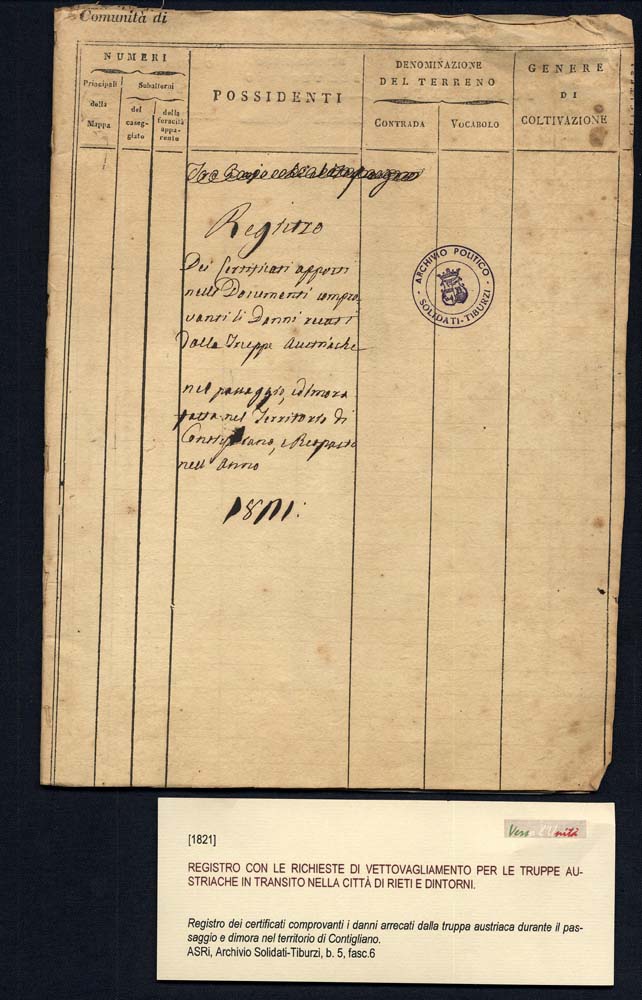 Comunità di
NUMERI
Principali
della
Mappa
Subalterni
del
caseg-
giato
della
feracità
appa-
rente
POSSIDENTI
DENOMINAZIONE
DEL TERRENO
CONTRADA
VOCABOLO
GENERE
DI
COLTIVAZIONE
Registro
Dei Certificati apposti
nelli Documenti compro
vanti li Danni recati
Dalle Truppe Austriache
nel passaggio, e dimora
fatta nel Territorio di
Contigliano, e
nell'Anno
1821:
ARCHIVIO POLITICO
SOLIDATI-TIBURZI
Verso l'Unità
[1821]
REGISTRO CON LE RICHIESTE DI VETTOVAGLIAMENTO PER LE TRUPPE AU-
STRIACHE IN TRANSITO NELLA CITTÀ DI RIETI E DINTORNI.
Registro dei certificati comprovanti i danni arrecati dalla truppa austriaca durante il pas-
saggio e dimora nel territorio di Contigliano.
ASRi, Archivio Solidati-Tiburzi, b. 5, fasc.6